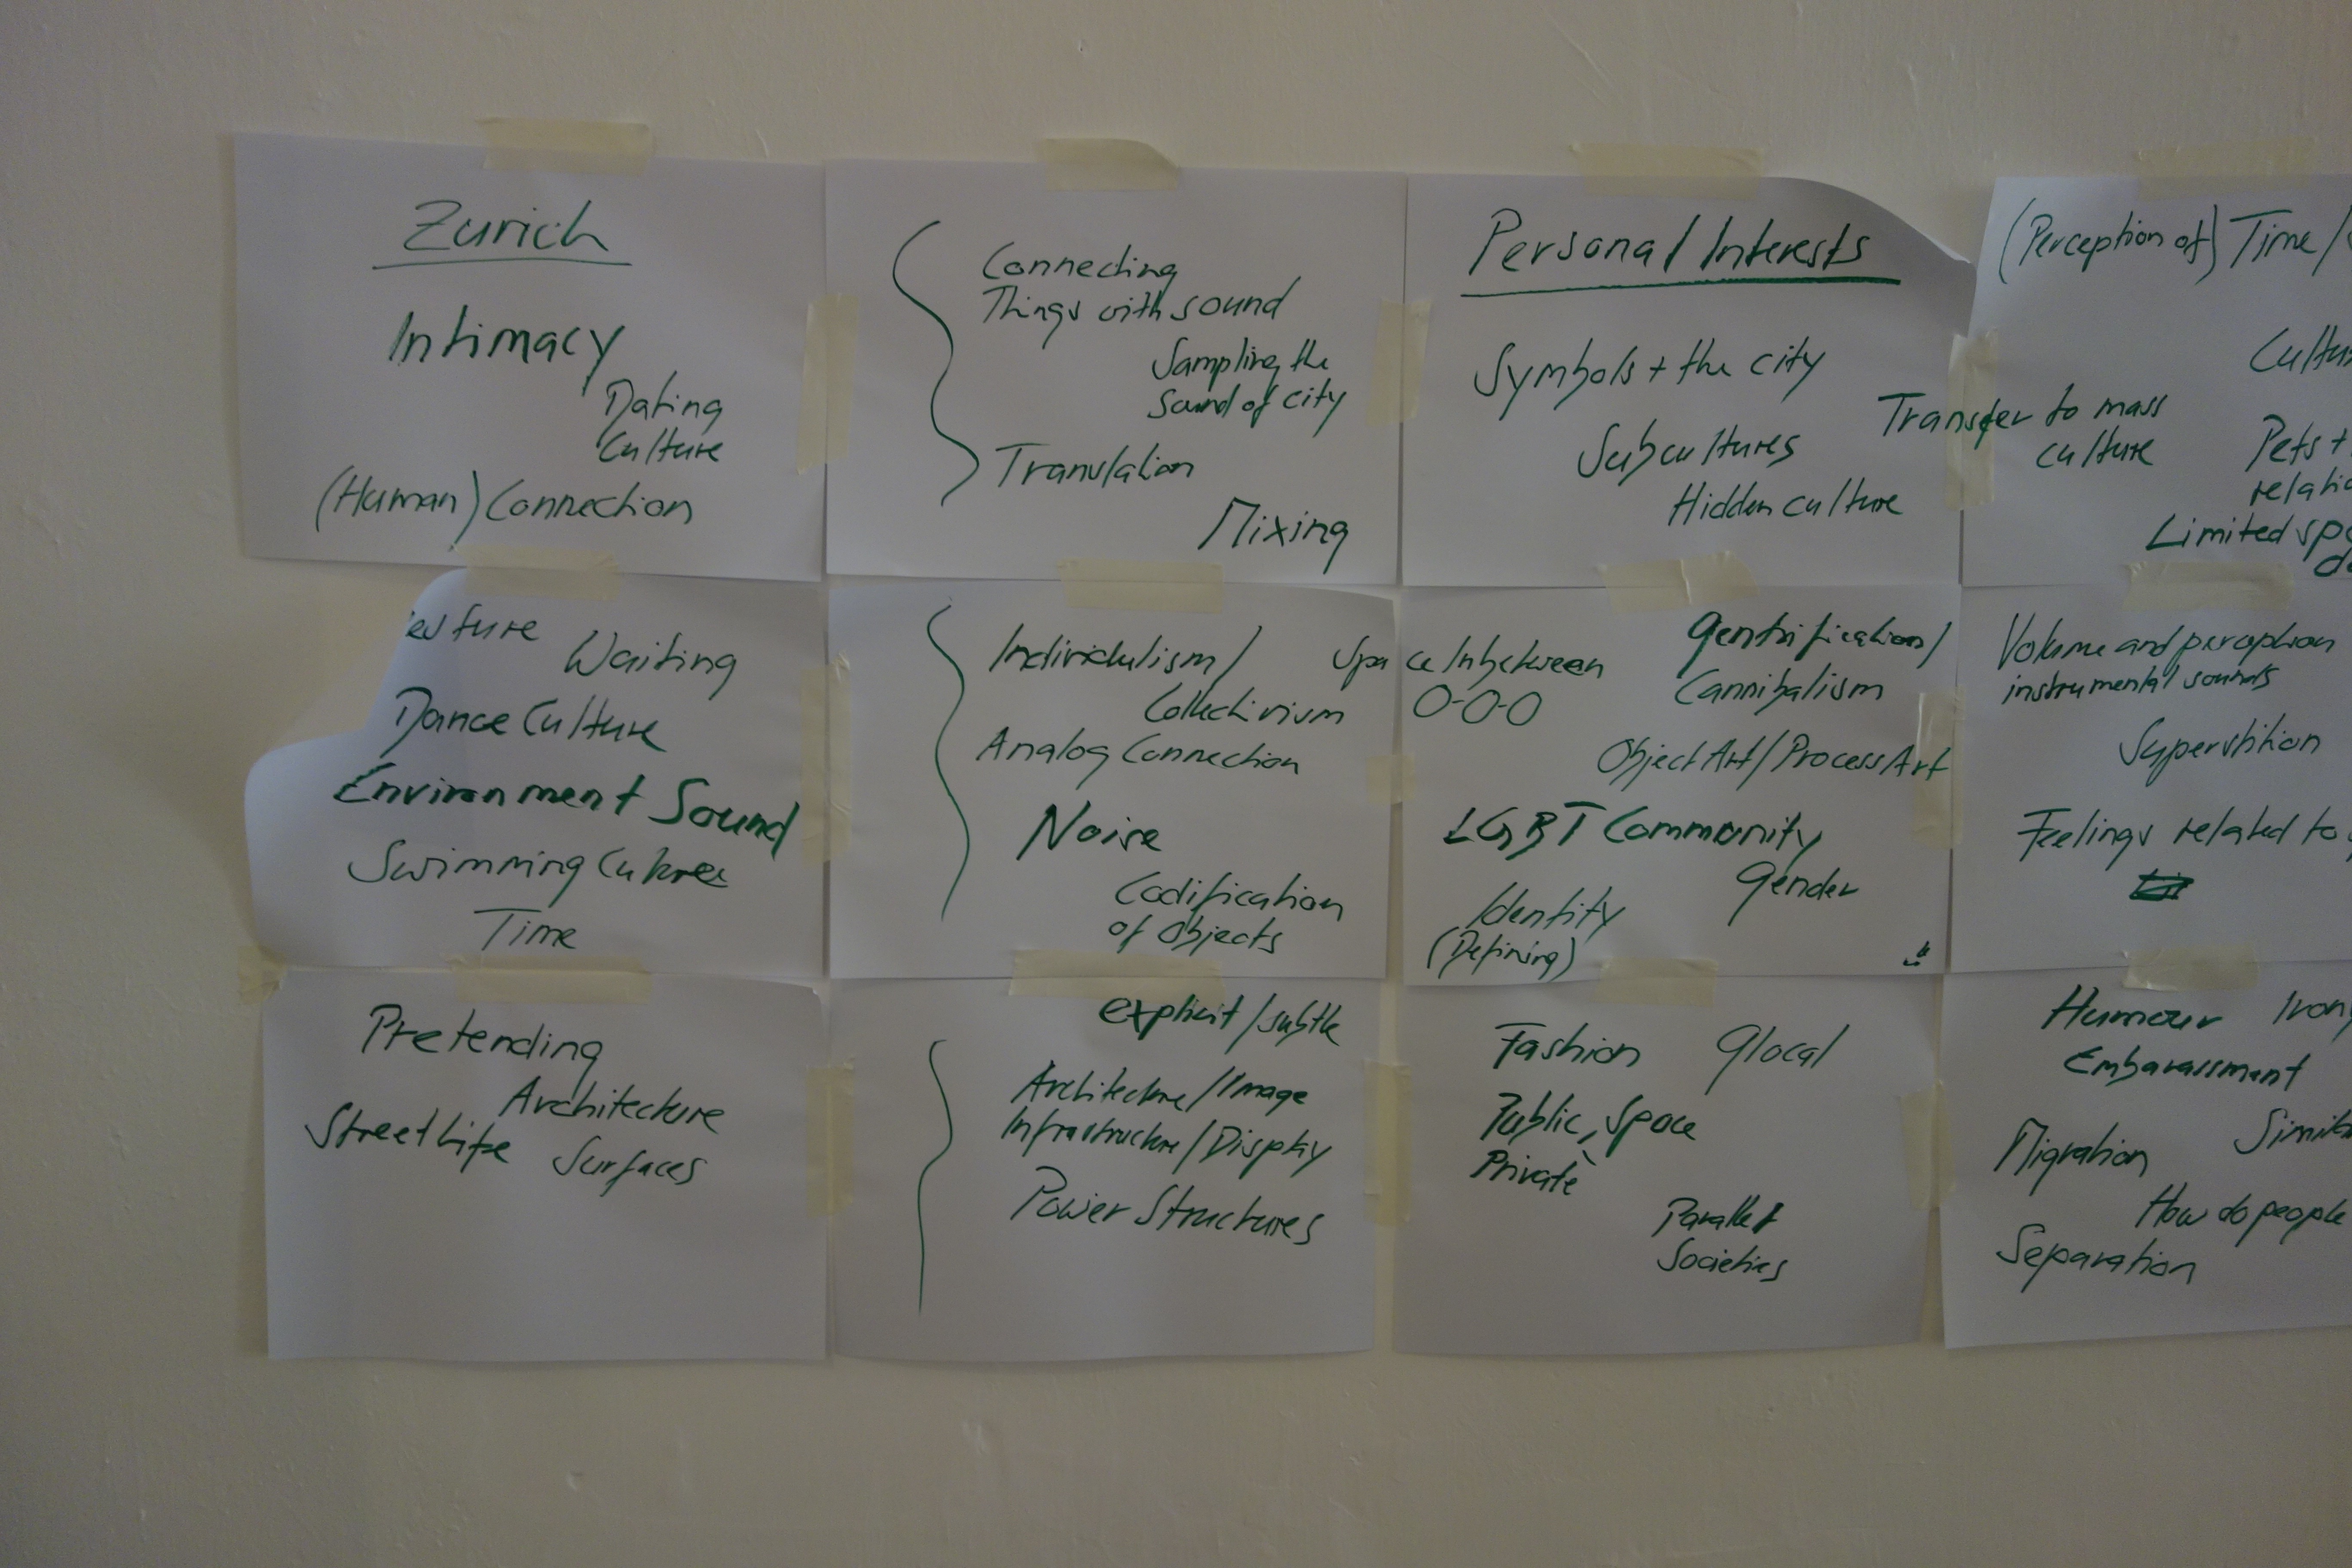 Zurich
Intimacy
Dating
Culture
(Human) Connection
Connecting
Things with sound
Sampling the
Sound of city
Translation
Mixing
Personal Interests
Symbols + the city
Subcultures
Hidden culture
Transfer to mass
culture
(Perception of) Time /
Pets +
Limited
Waiting
Dance Culture
Environment Sound
Swimming
Time
Individulism /
Collectivism
Analog Connection
Noise
Codification
of Objects
Space Inbetween
O-O-O
Gentrification /
Cannibalism
Object Art / Process Art
LGBT Community
Gender
Identity
(Defining)
Volume and perception
instrumental sounds
Superstition
Feelings related to
Pretending
Architecture
Street Life
Surfaces
explicit / subtle
Architecture / Image
Infrastructure / Display
Power Structures
Fashion Glocal
Public, Space
Private
Parallel
Societies
Humour
Embarassment
Migration
How do people
Separation